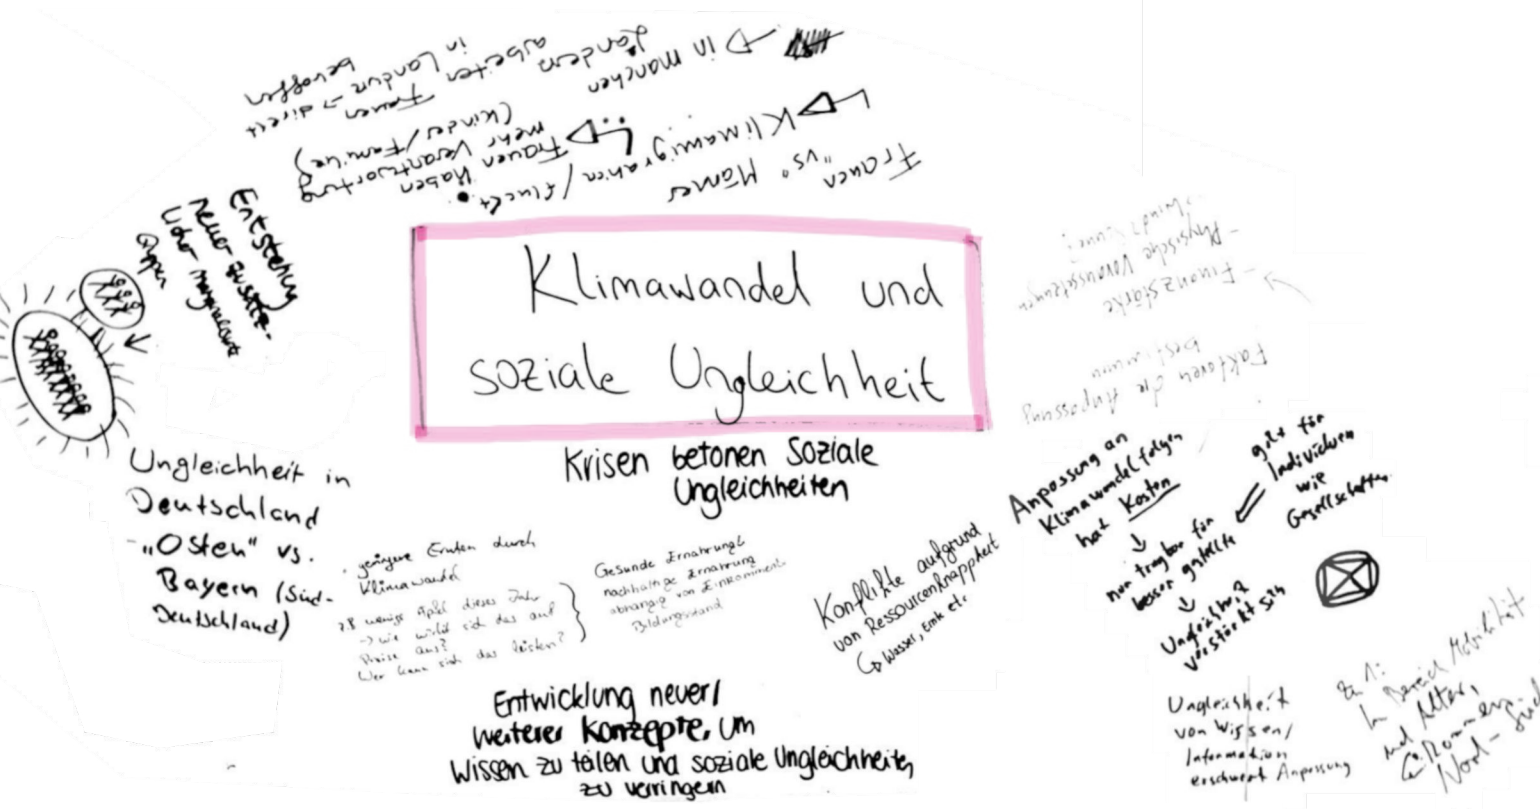 Klimawandel und
soziale Ungleichheit
Krisen betonen Soziale
Ungleichheiten
Frauen "vs" Männer
Klimamigration / Flucht
Frauen haben
mehr Verantwortung
(Kinder/Familie)
in manchen
Ländern arbeiten Frauen in
direkt
betroffen
Entstehung
neuer
Gruppen
Ungleichheit in
Deutschland
- „Osten" vs.
Bayern (Süd-
Deutschland)
. geringere Ernten durch
Klimawandel
z.B. wenige Äpfel dieses Jahr
-> wie wirkt sich das auf
Preise aus?
Wer kann sich das leisten?
Gesunde Ernährung &
nachhaltige Ernährung
abhängig von Einkommen &
Bildungsstand
Entwicklung neuer/
weiterer Konzepte, um
Wissen zu teilen und soziale Ungleichheiten
zu verringern
Konflikte aufgrund
von Ressourcenknappheit
↳ Wasser, Ernte etc.
Faktoren die Anpassung
bestimmen
- Finanzstärke
- Physische Voraussetzungen
Anpassung an
Klimawandelfolgen
hat Kosten
↓
nur tragbar für
besser gestellte
↓
Ungleichheit
verstärkt sich
gilt für
Individuen
wie
Gesellschaften
Ungleichheit
von Wissen/
Information
erschwert Anpassung
Zu 1:
Im Bereich Mobilität
und Alter,
Nord - Süd